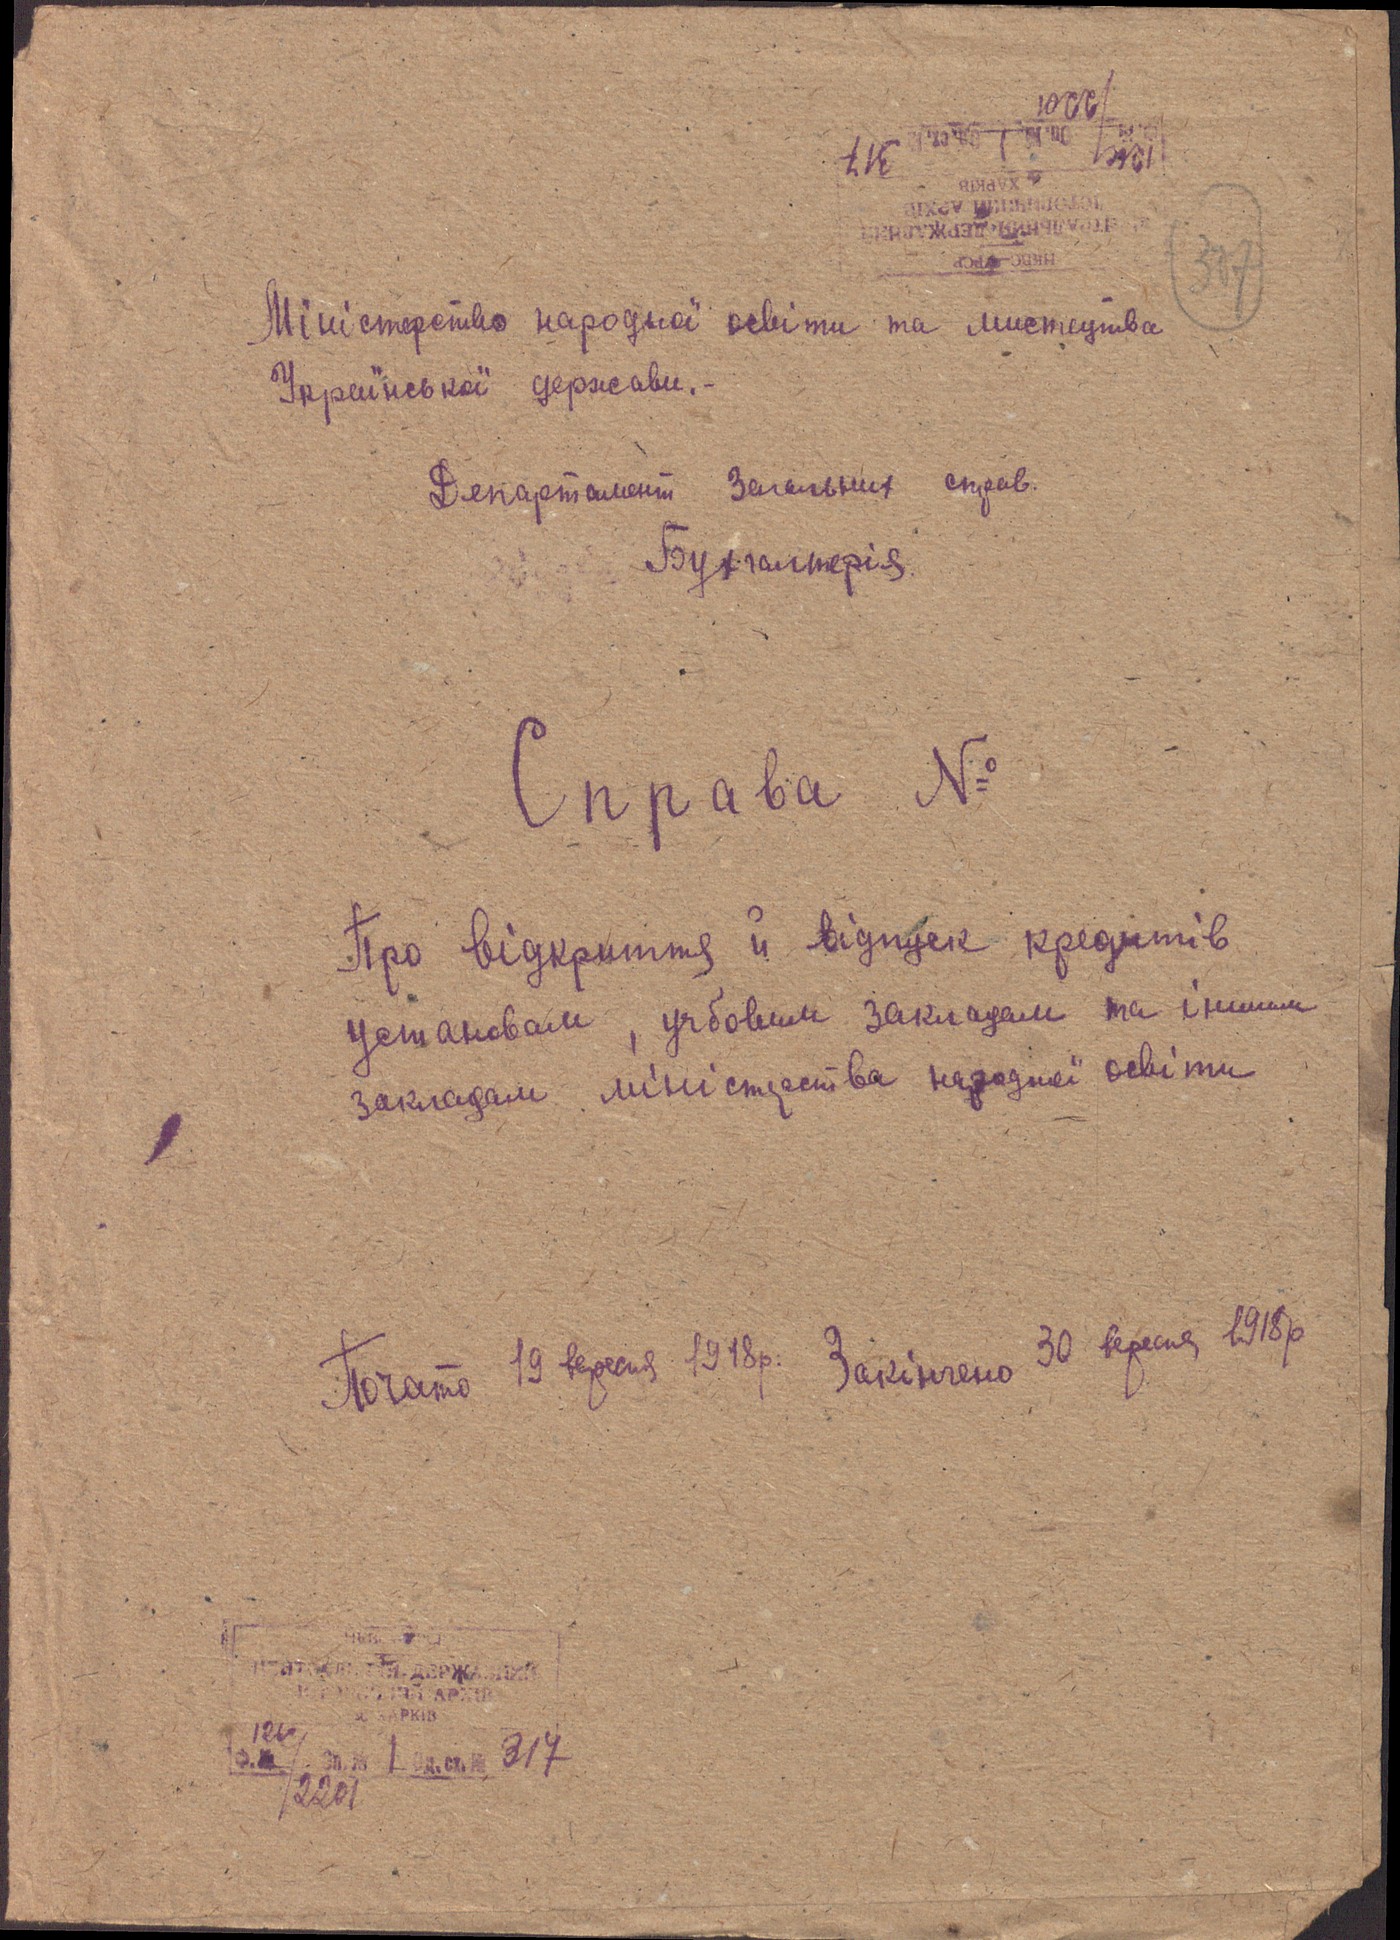 2201
Ф. № Оп. № 1 Од. сх. № 317
ХАРКІВ
ІСТОРИЧНИЙ АРХІВ
ЦЕНТРАЛЬНИЙ ДЕРЖАВНИЙ
НКВС УРСР
307
Міністерство народної освіти та мистецтва
Української держави.-
Департамент Загальних справ.
Бухгалтерія.
Справа №
Про відкриття й відпуск кредитів
установам, учбовим закладам та іншим
закладам міністерства народньої освіти
Почато 19 вересня 1918р. Закінчено 30 вересня 1918р
ЦЕНТРАЛЬНИЙ ДЕРЖАВНИЙ
ІСТОРИЧНИЙ АРХІВ
м. ХАРКІВ
Ф. № Оп. № 1 Од. сх. № 317
2201